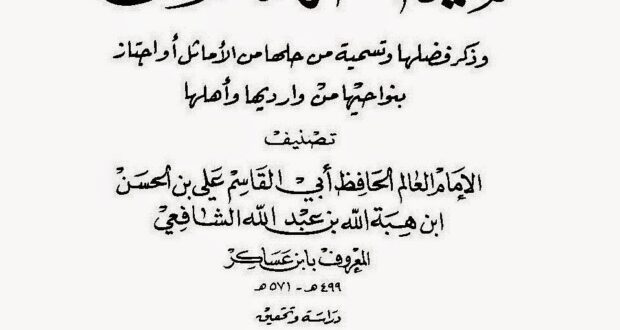 وذكر فضلها وتسمية من حلها من الأماثل أو اجتاز
بنواحيها من وارديها وأهلها
تصنيف
الإمام العالم الحافظ أبي القاسم علي بن الحسن
ابن هبة الله بن عبد الله الشافعي
المعروف بابن عساكر
٤٩٩ هـ - ٥٧١ هـ
دراسة وتحقيق